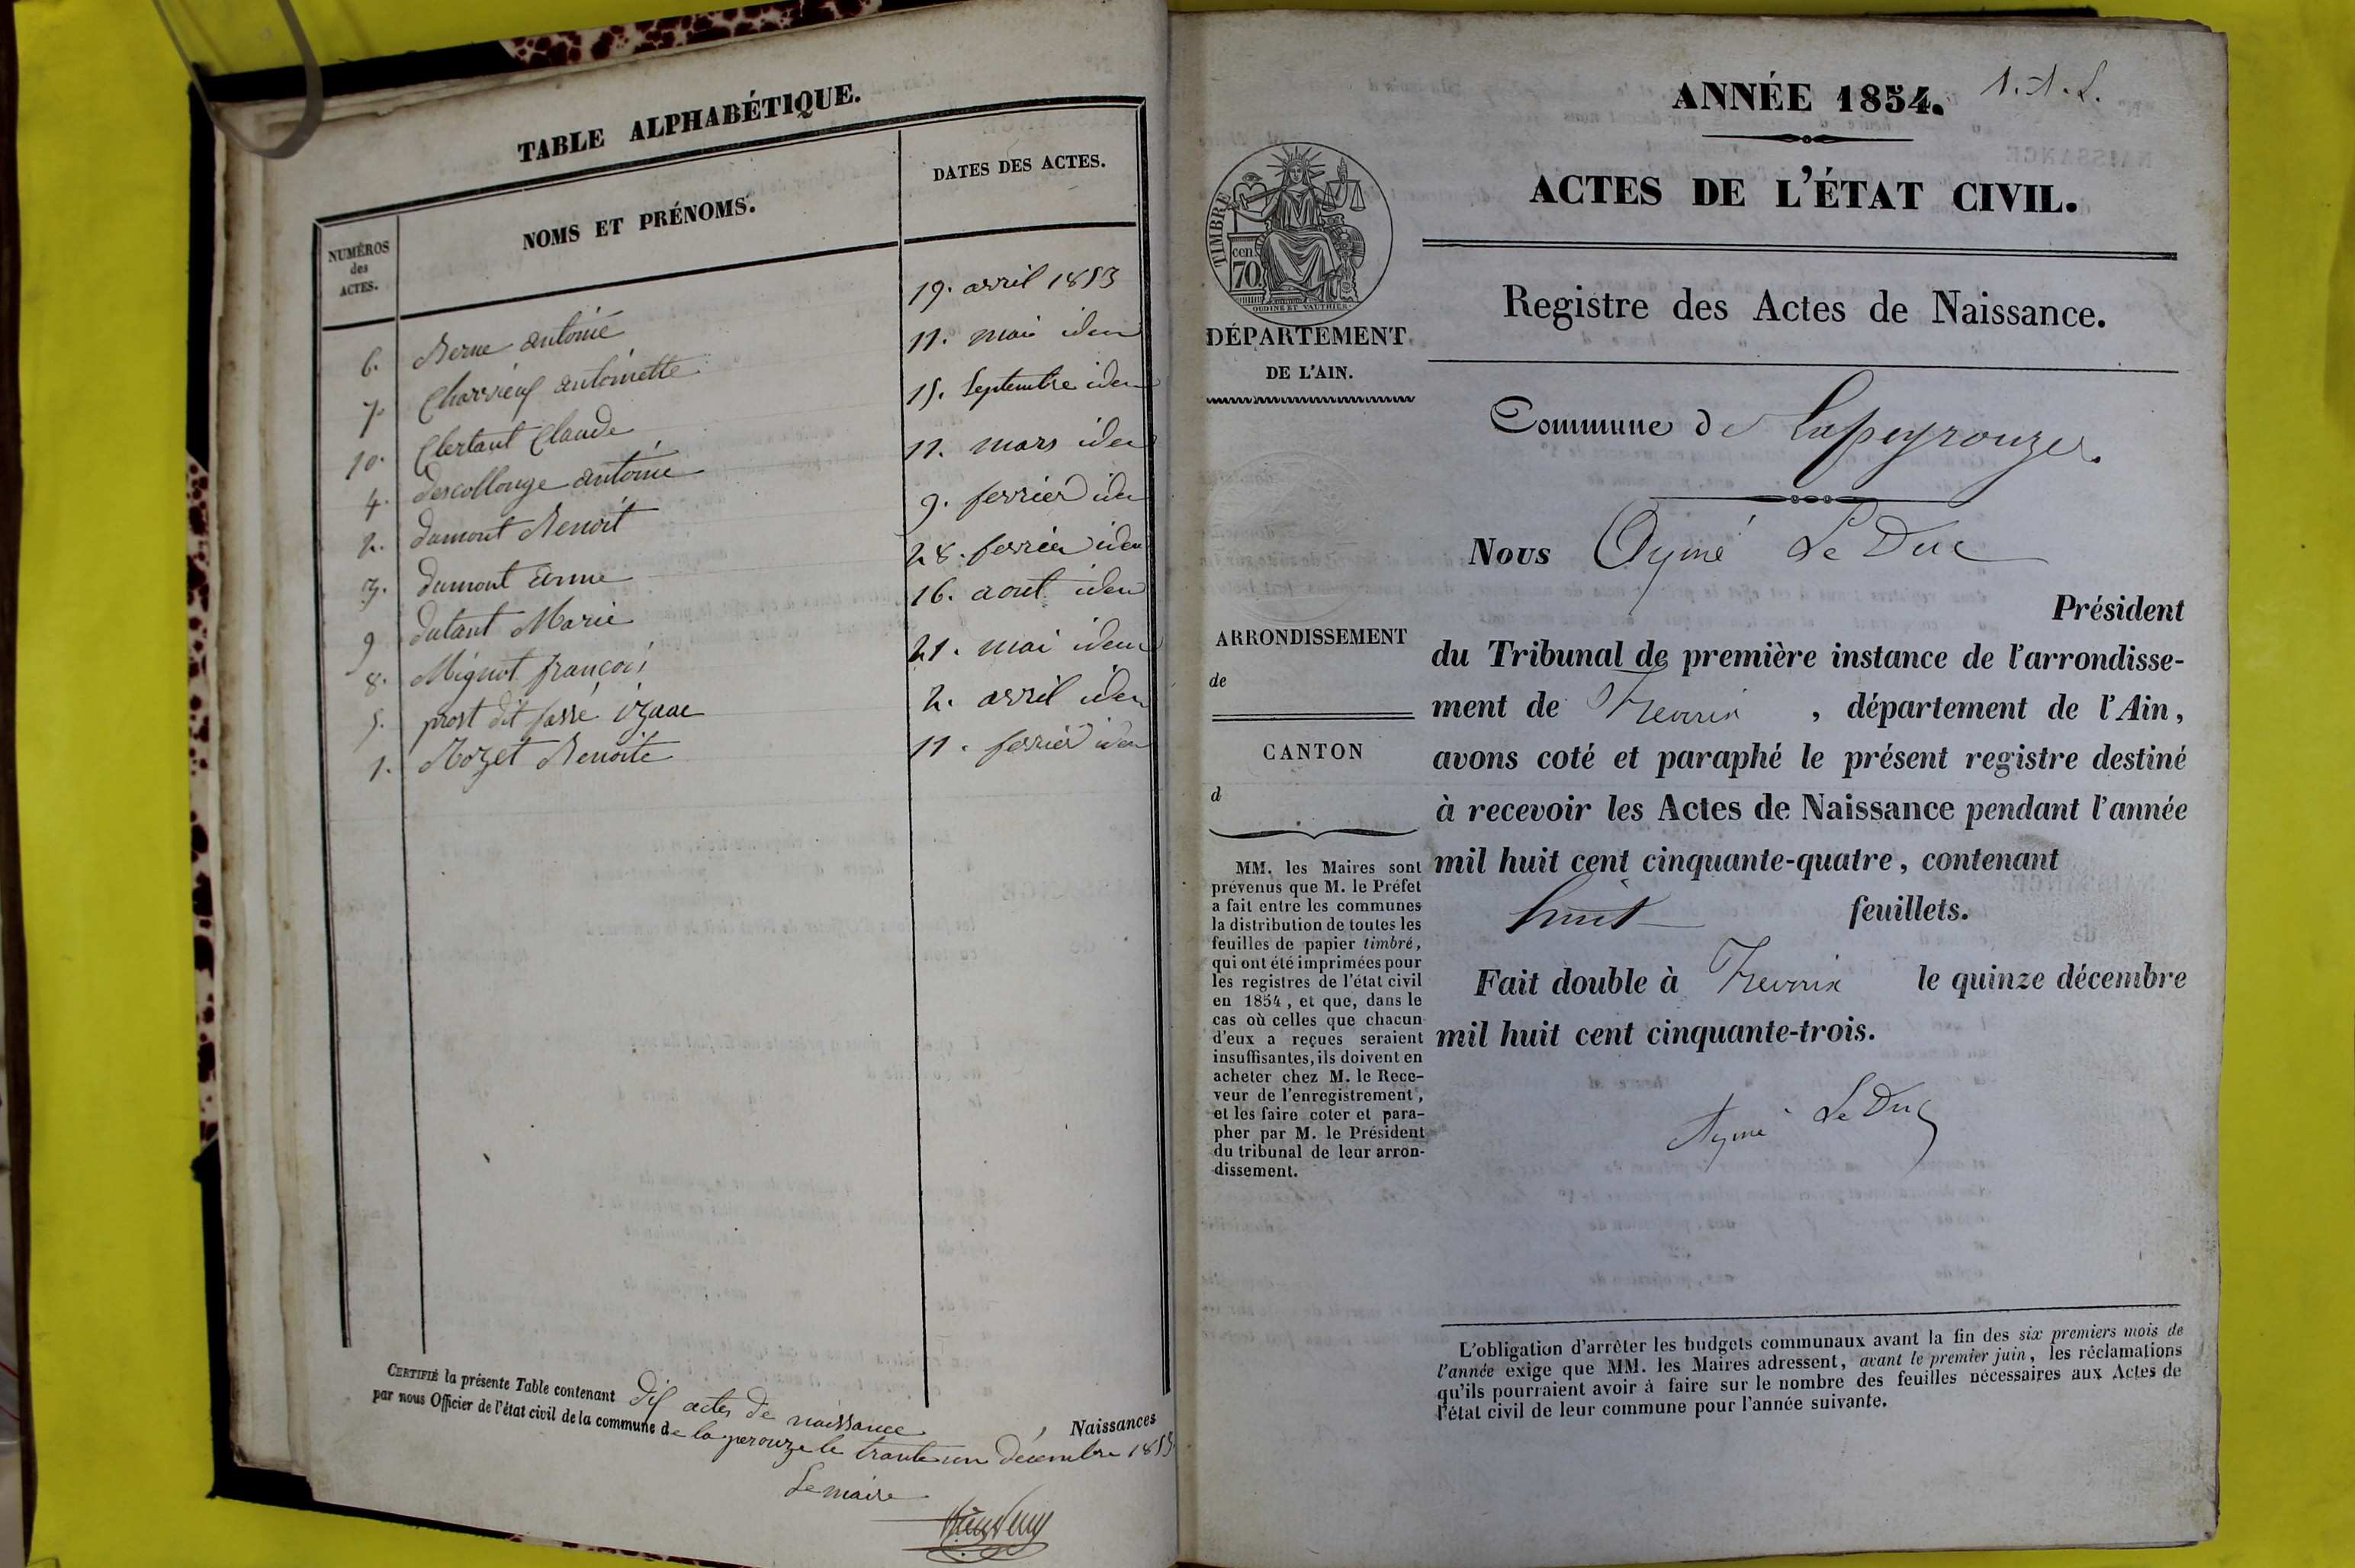 TABLE ALPHABÉTIQUE.
NUMÉROS
des
ACTES.
NOMS ET PRÉNOMS.
DATES DES ACTES.
6. Berne antoine 19. avril 1853
7. antoinette 11. mai idem
10. Clertant Claude 15. Septembre idem
4. descollonge antoine 11. mars idem
2. dumont Benoit 9. fevrier idem
3. dumont anne 28. fevrier idem
9 dutant Marie 16. aout idem
8. Mignot françois 21. mai idem
5. prost dit izaac 2. avril idem
1. Rozet Benoite 11. fevrier idem
CERTIFIÉ la présente Table contenant dix actes de naissance , Naissances
par nous Officier de l'état civil de la commune de la perouze le trante un decembre 1853
Le maire
ANNÉE 1854.
ACTES DE L'ÉTAT CIVIL.
Registre des Actes de Naissance.
TIMBRE
70 cen.
OUDINE ET VAUTHIER
DÉPARTEMENT
DE L'AIN.
Commune de Lapeyrouze.
Nous Aymé Le Duc
Président
du Tribunal de première instance de l'arrondisse-
ment de Trevoux , département de l'Ain,
avons coté et paraphé le présent registre destiné
à recevoir les Actes de Naissance pendant l'année
mil huit cent cinquante-quatre, contenant
huit feuillets.
Fait double à Trevoux le quinze décembre
mil huit cent cinquante-trois.
Aymé Le Duc
ARRONDISSEMENT
de
CANTON
d
MM. les Maires sont
prévenus que M. le Préfet
a fait entre les communes
la distribution de toutes les
feuilles de papier timbré,
qui ont été imprimées pour
les registres de l'état civil
en 1854, et que, dans le
cas où celles que chacun
d'eux a reçues seraient
insuffisantes, ils doivent en
acheter chez M. le Rece-
veur de l'enregistrement,
et les faire coter et para-
pher par M. le Président
du tribunal de leur arron-
dissement.
L'obligation d'arrêter les budgets communaux avant la fin des six premiers mois de
l'année exige que MM. les Maires adressent, avant le premier juin, les réclamations
qu'ils pourraient avoir à faire sur le nombre des feuilles nécessaires aux Actes de
l'état civil de leur commune pour l'année suivante.